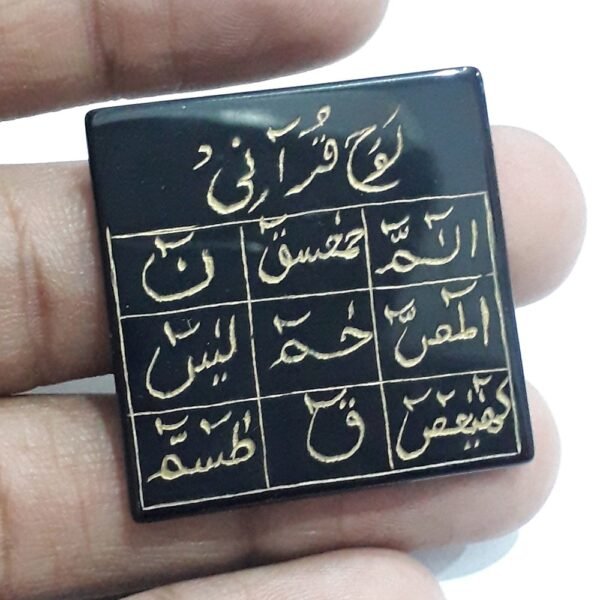 لوح قرآنی
الٓمّٓ حمٓعسق نٓ
الٓمٓصّٓ حٰمٓ یٰسٓ
كٓهٰيٰعٓصٓ قٓ طٰسٓمّٓ